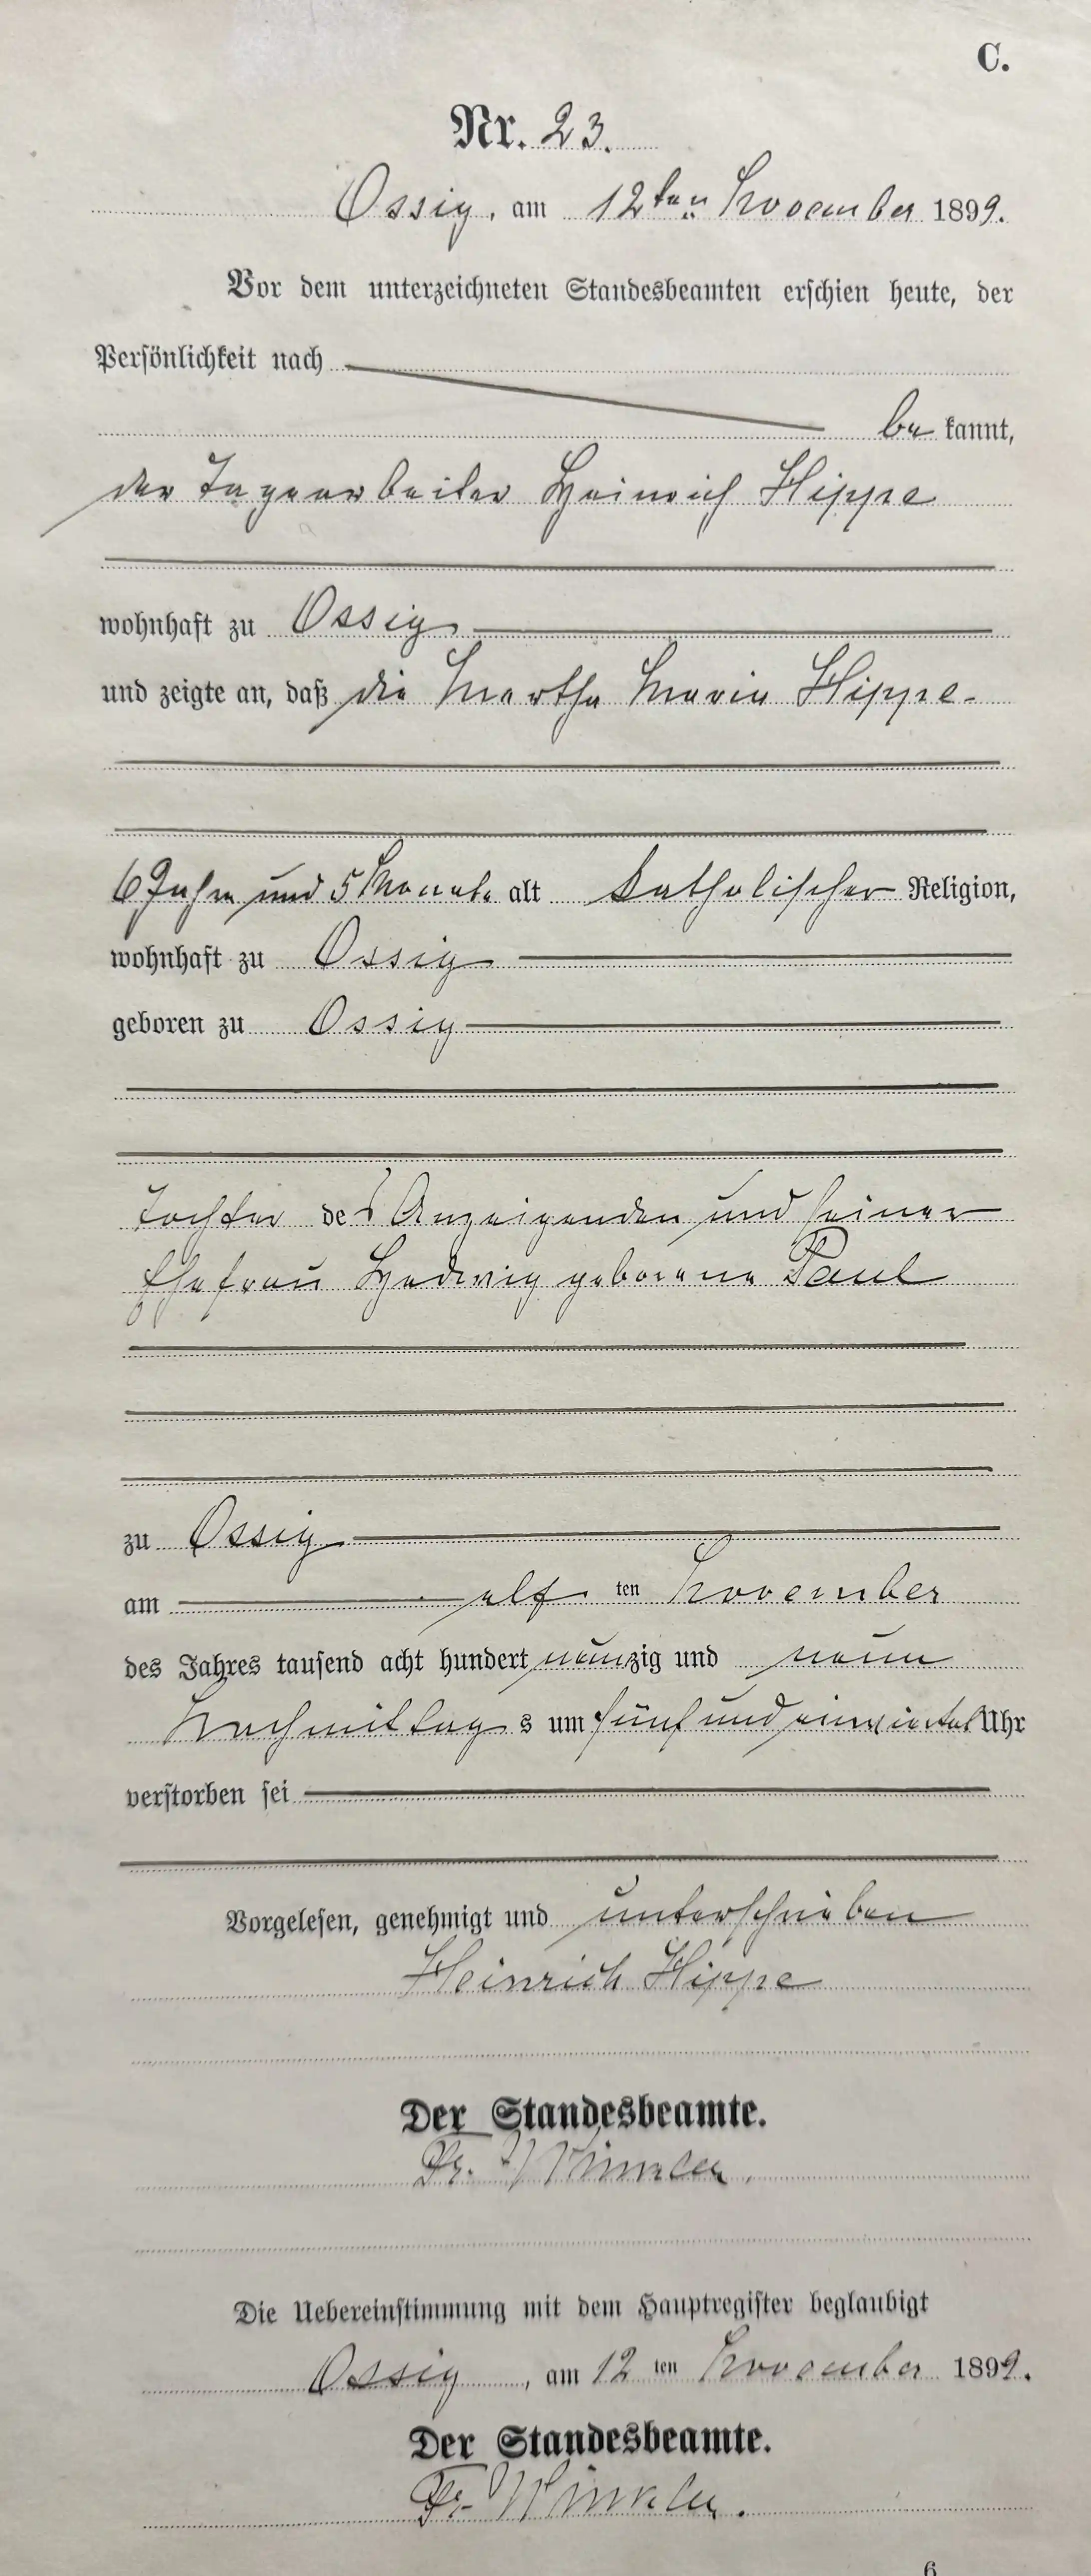 C.
Nr. 23.
Ossig, am 12ten November 1899.
Vor dem unterzeichneten Standesbeamten erschien heute, der
Persönlichkeit nach
be kannt,
der Tagearbeiter Heinrich Hippe
wohnhaft zu Ossig
und zeigte an, daß die Martha Maria Hippe
6 Jahre und 5 Monate alt katholischer Religion,
wohnhaft zu Ossig
geboren zu Ossig
Tochter des Anzeigenden und seiner
Ehefrau Hedwig geborene Paul
zu Ossig
am elf ten November
des Jahres tausend acht hundert neunzig und neun
Nachmittag s um fünf und einviertel Uhr
verstorben sei
Vorgelesen, genehmigt und unterschrieben
Heinrich Hippe
Der Standesbeamte.
Fr. Winkler.
Die Uebereinstimmung mit dem Hauptregister beglaubigt
Ossig, am 12 ten November 1899.
Der Standesbeamte.
Fr. Winkler.
6